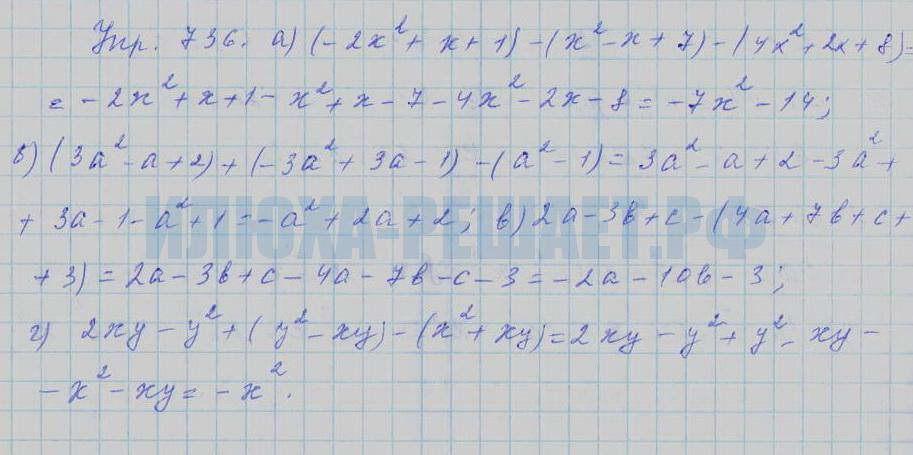 Упр. 736. а) (-2x²+x+1)-(x²-x+7)-(4x²+2x+8)=
= -2x²+x+1-x²+x-7-4x²-2x-8=-7x²-14;
б) (3a²-a+2)+(-3a²+3a-1)-(a²-1)=3a²-a+2-3a²+
+3a-1-a²+1=-a²+2a+2; в) 2a-3b+c-(4a+7b+c+
+3)=2a-3b+c-4a-7b-c-3=-2a-10b-3;
г) 2xy-y²+(y²-xy)-(x²+xy)=2xy-y²+y²-xy-
-x²-xy=-x².
ИЛЮХА-РЕШАЕТ.РФ